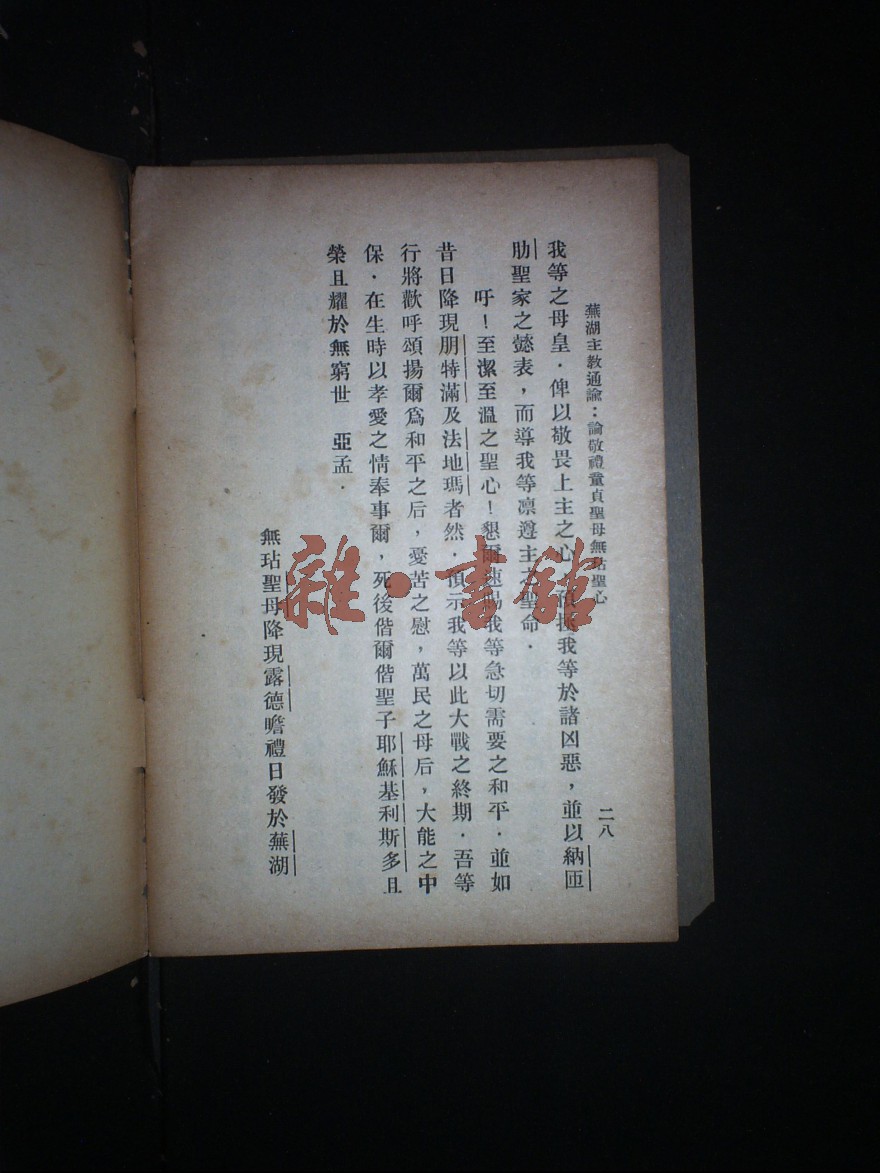 蕪湖主教通諭：論敬禮童貞聖母無玷聖心
二八
我等之母皇．俾以敬畏上主之心，預我等於諸凶惡，並以納匝
肋聖家之懿表，而導我等凛遵主之聖命．
吁！至潔至溫之聖心！懇爾速賜我等急切需要之和平．並如
昔日降現朋特滿及法地瑪者然．預示我等以此大戰之終期．吾等
行將歡呼頌揚爾爲和平之后，憂苦之慰，萬民之母后，大能之中
保．在生時以孝愛之情奉事爾，死後偕爾偕聖子耶穌基利斯多且
榮且耀於無窮世　亞孟．
無玷聖母降現露德瞻禮日發於蕪湖
雜·書館